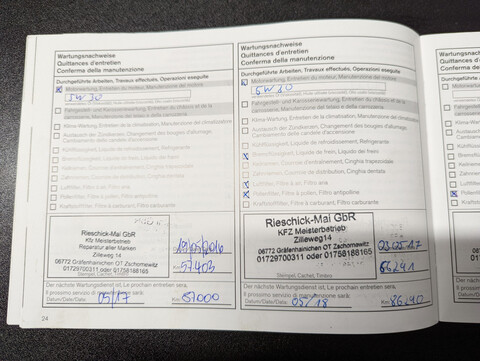 Wartungsnachweise
Quittances d'entretien
Conferma della manutenzione
Durchgeführte Arbeiten, Travaux effectués, Operazioni eseguite
Motorwartung, Entretien du moteur, Manutenzione del motore
5W30
Fahrgestell- und Karosseriewartung, Entretien du châssis et de la
carrosserie, Manutenzione del telaio e della carrozzeria
Klima-Wartung, Entretien de la climatisation, Manutenzione del climatizzatore
Austausch der Zündkerzen, Changement des bougies d'allumage,
Cambiamento delle candele d'accensione
Kühlflüssigkeit, Liquide de refroidissement, Refrigerante
Bremsflüssigkeit, Liquide de frein, Liquido dei freni
Zahnriemen, Courroie d'entraînement, Cinghia dentata
Luftfilter, Filtre à air, Filtro aria
Pollenfilter, Filtre à pollen, Filtro antipolline
Kraftstofffilter, Filtre à carburant, Filtro carburante
Rieschick-Mai GbR
Kfz Meisterbetrieb
Reparatur aller Marken
Zilleweg 14
06772 Gräfenhainichen OT Zschornewitz
01729700311 oder 01758188165
Stempel, Cachet, Timbro
19/05/2016
Km 57403
Der nächste Wartungsdienst ist, Le prochain entretien sera,
Il prossimo servizio di manutenzione sarà:
Datum/Date/Data: 05/17 Km 67000
24
Wartungsnachweise
Quittances d'entretien
Conferma della manutenzione
Durchgeführte Arbeiten, Travaux effectués, Operazioni eseguite
Motorwartung, Entretien du moteur, Manutenzione del motore
Fahrgestell- und Karosseriewartung, Entretien du châssis et de la
carrosserie, Manutenzione del telaio e della carrozzeria
Klima-Wartung, Entretien de la climatisation, Manutenzione del climatizzatore
Austausch der Zündkerzen, Changement des bougies d'allumage,
Cambiamento delle candele d'accensione
Kühlflüssigkeit, Liquide de refroidissement, Refrigerante
Bremsflüssigkeit, Liquide de frein, Liquido dei freni
Luftfilter, Filtre à air, Filtro aria
Pollenfilter, Filtre à pollen, Filtro antipolline
Kraftstofffilter, Filtre à carburant, Filtro carburante
Rieschick-Mai GbR
KFZ Meisterbetrieb
Zilleweg14
06772 Gräfenhainichen OT Zschornewitz
01729700311 oder 01758188165
Stempel, Cachet, Timbro
Der nächste Wartungsdienst ist, Le prochain entretien sera,
Il prossimo servizio di manutenzione sarà:
Datum/Date/Data: 05/18 Km